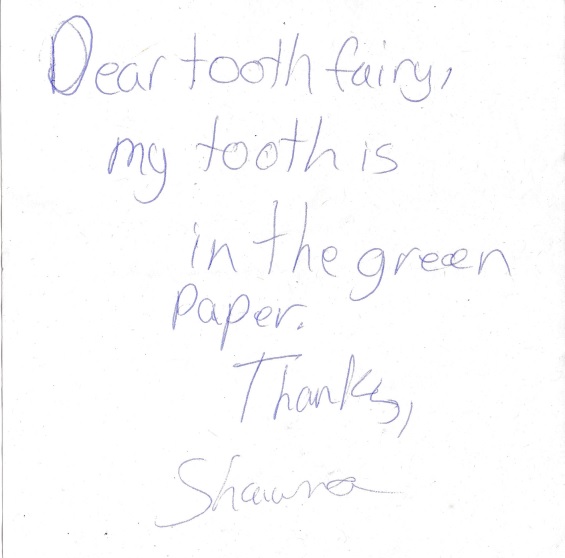 Dear tooth fairy,
my tooth is
in the green
paper.
Thanks,
Shawna